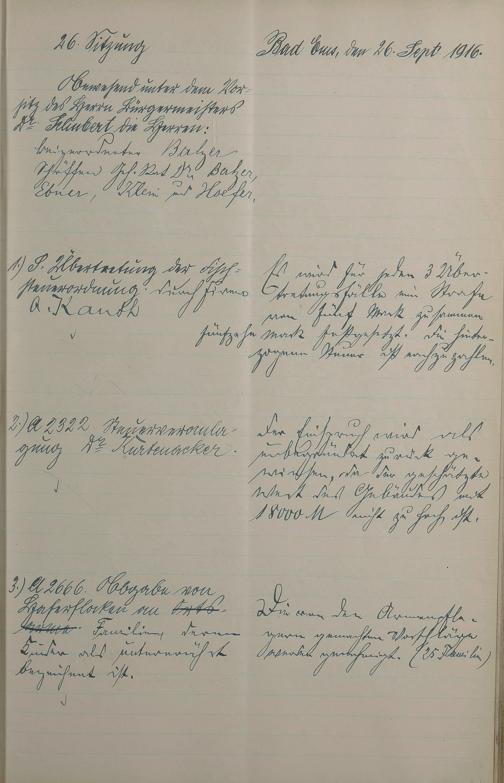 26. Sitzung
Bad Ems, den 26. Sept 1916.
Anwesend unter dem Vor-
sitz des Herrn Bürgermeisters
Dr. Schubert die Herren:
Beigeordneter Balzer
Schöffen Geh. Rat Dr. Balzer,
Ebner, Klein und Hoefer.
1.) P. Übertretung der Fisch-
steuerordnung. durch Firma
A. Kauth
Es wird für jeden 3 Über-
tretungsfälle ein Strafe
von fünf Mark zusammen
fünfzehn Mark festgesetzt. Die hinter-
zogene Steuer ist nachzuzahlen.
2.) A 2322 Steuerveranla-
gung Dr. Kurtenacker.
Der Einspruch wird als
unbegründet zurück ge-
wiesen, da der geschätzte
Wert des Gebäudes mit
18000 M nicht zu hoch ist.
3.) A 2666. Abgabe von
Haferflocken an Orts-
arme Familien deren
Kinder als unterernährt
bezeichnet ist.
Die von den Armenpfle-
gern gemachten Vorschläge
werden genehmigt. (25 Familien)